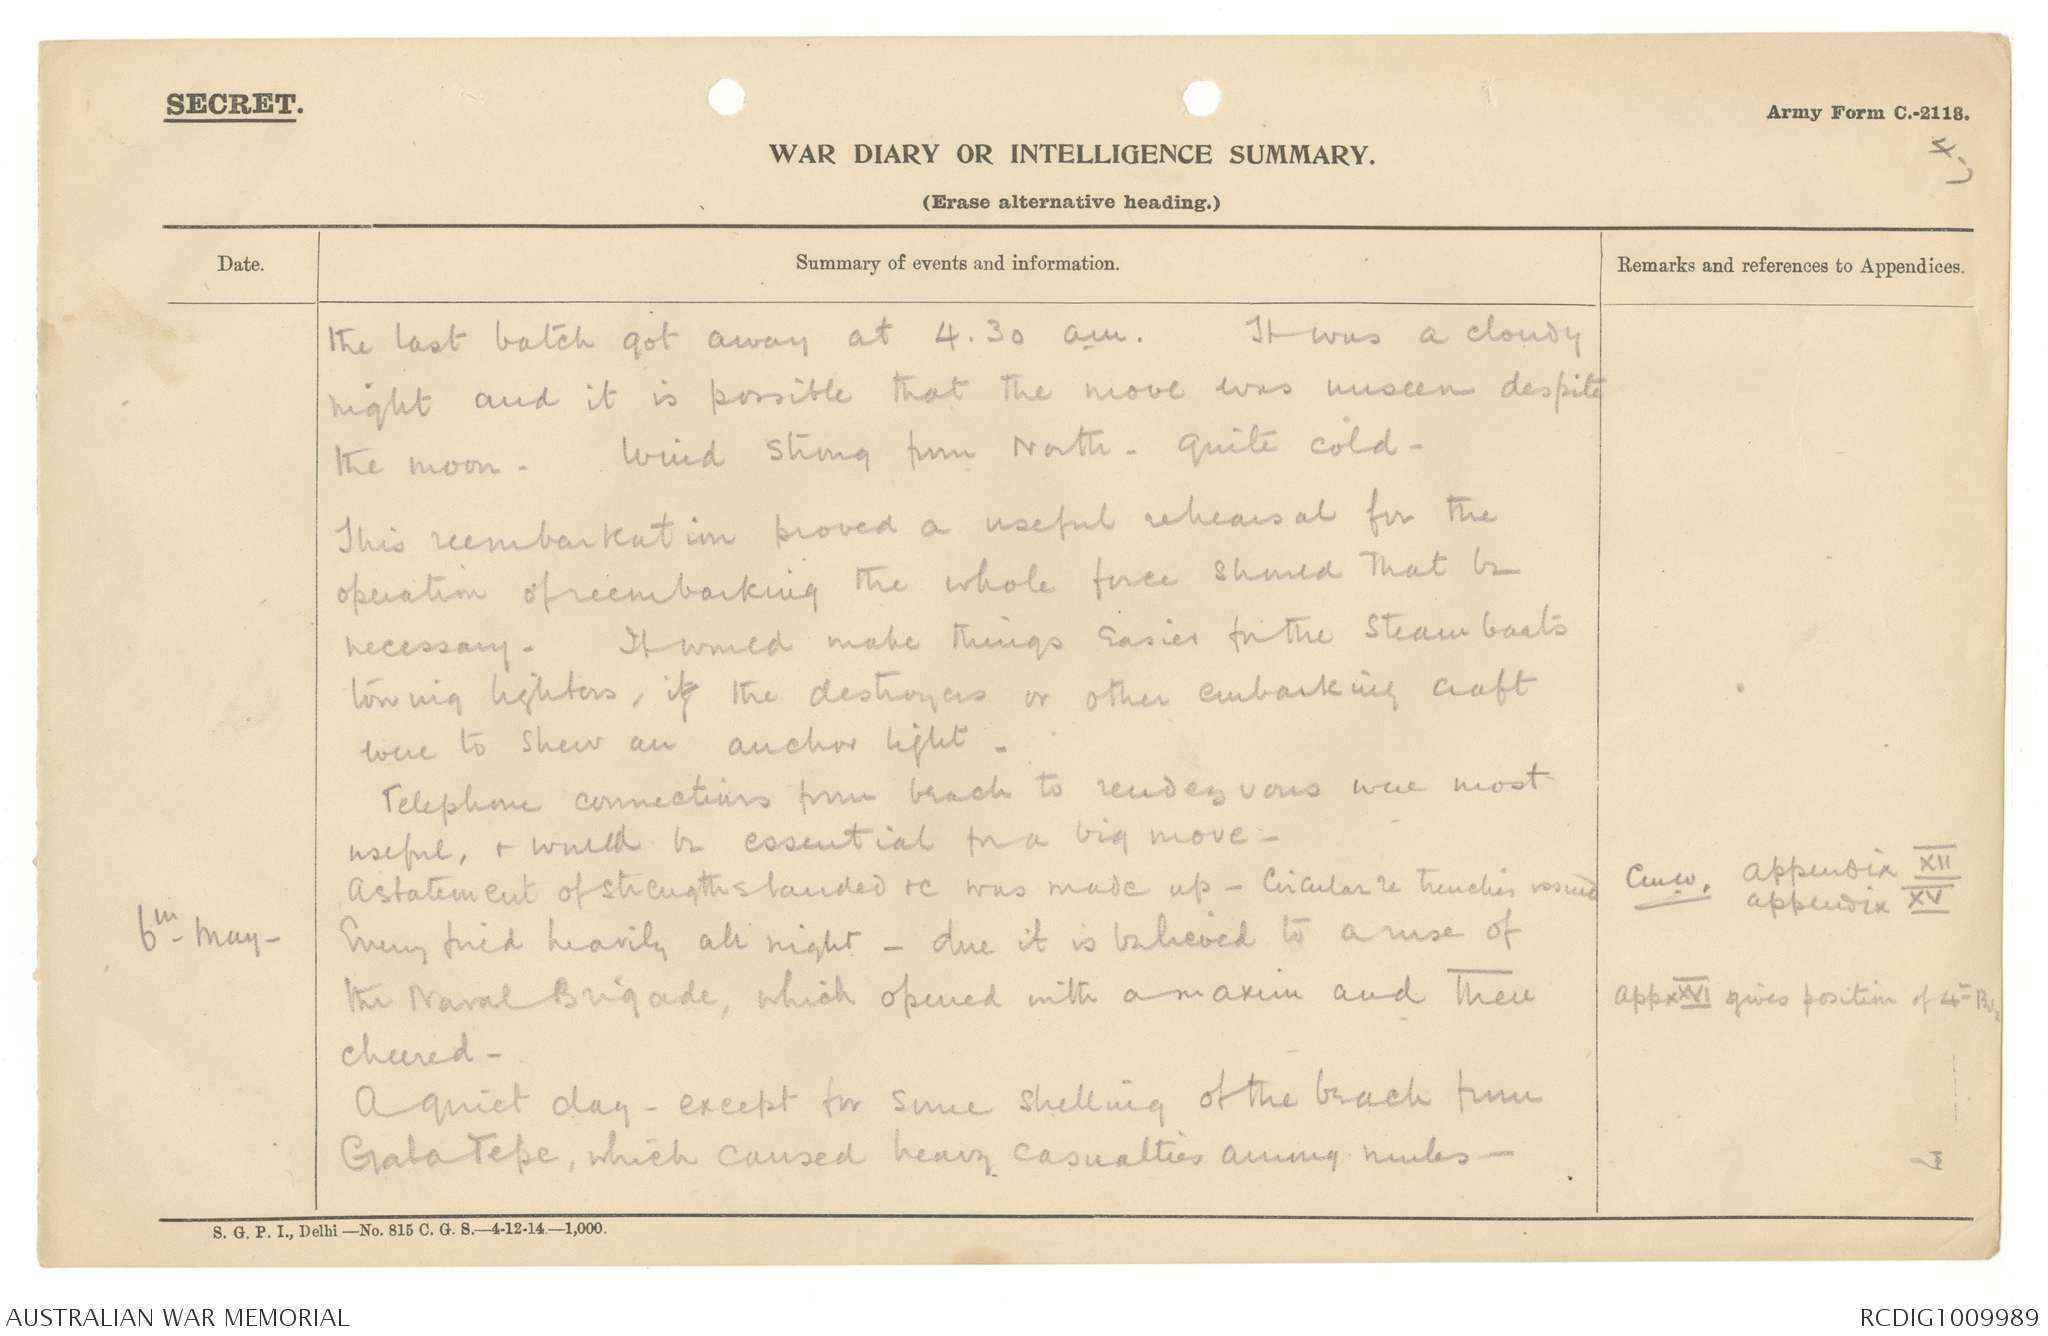 SECRET.
Army Form C.-2118.
WAR DIARY OR INTELLIGENCE SUMMARY.
(Erase alternative heading.)
Date.
Summary of events and information.
Remarks and references to Appendices.
the last batch got away at 4.30 am. It was a cloudy
night and it is possible that the move was unseen despite
the moon - Wind strong from North - quite cold -
This reembarkation proved a useful rehearsal for the
operation of reembarking the whole force should that be
necessary - It would make things easier for the steam boats
towing lighters, if the destroyers or other embarking craft
were to shew an anchor light -
Telephone connections from beach to rendezvous were most
useful, + would be essential for a big move -
A statement of strengths landed +c was made up - Circular re trenches issued
appendix XII
appendix XV
6th May -
Enemy fired heavily all night - due it is believed to a ruse of
the Naval Brigade, which opened with a maxim and then
cheered -
Appx XVI gives position of 4th
A quiet day - except for some shelling of the beach from
Gaba Tepe, which caused heavy casualties among mules -
S. G. P. I., Delhi —No. 815 C. G. S.—4-12-14—1,000.
AUSTRALIAN WAR MEMORIAL
RCDIG1009989